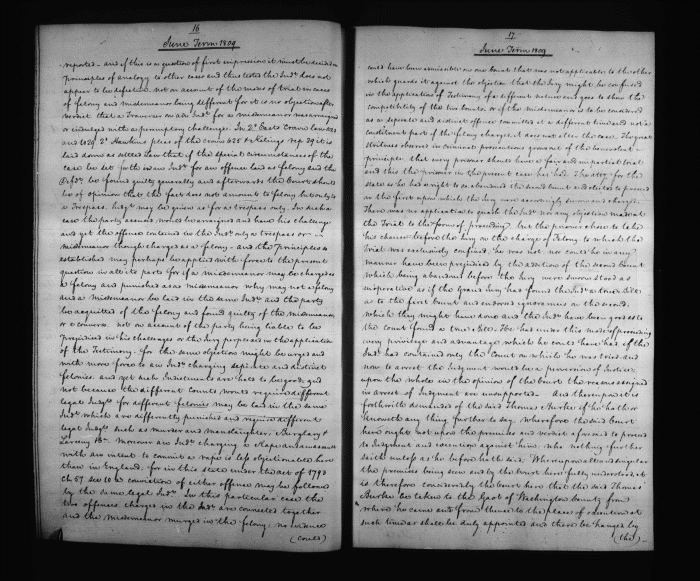 16
June Term 1809
reported — and if this is a question of first impression it must be decided on
principles of analogy to other cases and thus tested the Indt does not
appear to be defective. not on account of the modes of trial in cases
of felony and misdemeanor being different for it is no objection after
verdict that a Traverser on an Indt for a misdemeanor was arraigned
or indulged with a peremptory challenge. In 2d Easts Crown law
and 1029. 2d Hawkins pleas of the crown 625 & Kelings rep. 29 it is
laid down as settled law that if the special circumstances of the
case be set forth in an Indt for an offence laid as felony and the
Defdt be found guilty generally and afterwards the Court should
be of opinion that the fact does not amount to felony, but only to
a Trespass, Judgt may be given as for a trespass only. In such a
case the party accused, would be arraigned and have his challenge
and yet the offence contained in the Indt only a trespass or
misdemeanor though charged as a felony. and the Principles so
established may perhaps be applied with force to the present
question in all its parts for if a misdemeanor may be charged as
a felony and punished as a misdemeanor why may not a felony
and a misdemeanor be laid in the same Indt and the party
be acquitted of the felony and found guilty of the misdemeanor
or e converso. not on account of the party being liable to be
prejudiced in his challenges or the Jury perplexed in the application
of the Testimony. for the same objection might be urged and
with more force to an Indt charging separate and distinct
felonies. and yet such Indictments are held to be good. and
not because the different counts would require different
legal Judgts for different felonies may be laid in the same
Indt which are differently punished and require different
legal Judgts such as murder and manslaughter, Burglary &
Larceny &c. Moreover an Indt charging a Rape and an assault
with an intent to commit a rape is less objectionable here
than in England. for in this state under the act of 1793
ch 57 sec 10 the conviction of either offence may be followed
by the same legal Indt In this particular case the
two offences charged in the Indt are connected together
and the misdemeanor merges in the felony; no evidence
(could)
17
June Term 1809
could have been admissible on one Count that was not applicable to the other
which guards it against the objection that the Jury might be confused
in the application of Testimony of a different nature and goes to shew the
compatibility of the two Counts. or if the misdemeanor is to be considered
as a separate and distinct offence committed at a different time and not a
constituent part of the felony charged, it does not alter the case. The great
strictness observed in criminal prosecutions grows out of the benevolent
principle that every prisoner should have a fair and impartial trial
and this the prisoner in the present case has had. The Atty for the
state as he had a right to do abandoned the second Count and elected to proceed
on the first upon which the Jury were accordingly sworn and charged.
There was no application to quash the Indt nor any objection made at
the Trial to the form of proceeding. but the prisoner chose to take
his chance before the Jury on the charge of Felony to which the
Trial was exclusively confined. he was not nor could he in any
manner have been prejudiced by the addition of the second Count
which being abandoned before the Jury were sworn stood as
inoperative as if the Grand Jury had found the Indt a true bill
as to the first Count and endorsed ignoramus on the second.
which they might have done and the Indt have been good as to
the Count found a true bill. The has under this mode of proceeding
every privilege and advantage which he could have had, if the
Indt had contained only the Count on which he was tried. and
now to arrest the Judgment would be a perversion of Justice.
upon the whole in the opinion of the Court the reasons assigned
in arrest of Judgment are unsupported. And thereupon it is
forthwith demanded of the said Thomas Burke if he hath or
knoweth any thing further to say, wherefore the said Court
here ought not upon the premises and verdict aforesaid to proceed
to Judgment and execution against him. who nothing further
saith unless as he before hath said. Whereupon all and singular
the premises being seen and by the Court here fully understood it
is therefore considered by the Court here that the said Thomas
Burke be taken to the Gaol of Washington County from
where he came and from thence to the place of execution at
such time as shall be duly appointed and there be hanged by
(the)